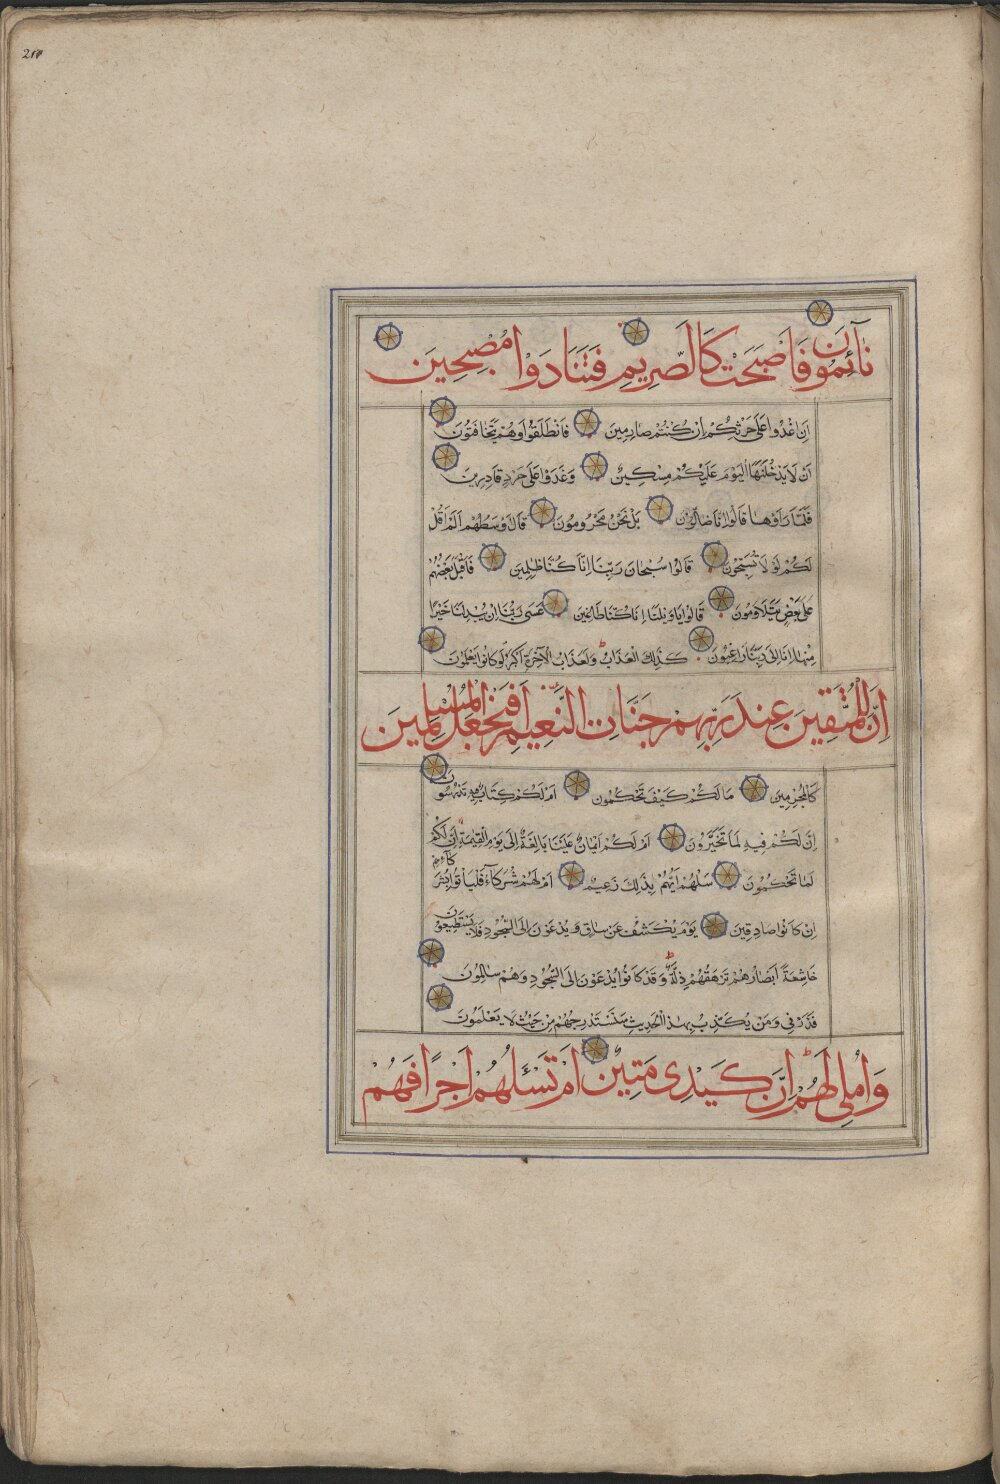 نَآئِمُونَ فَاَصْبَحَتْ كَالصَّرِيمِ فَتَنَادَوْا مُصْبِحِينَ
اَنِ اغْدُوا عَلَى حَرْثِكُمْ اِنْ كُنْتُمْ صَارِمِينَ فَانْطَلَقُوا وَهُمْ يَتَخَافَتُونَ
اَنْ لَا يَدْخُلَنَّهَا الْيَوْمَ عَلَيْكُمْ مِسْكِينٌ وَغَدَوْا عَلَى حَرْدٍ قَادِرِينَ
فَلَمَّا رَاَوْهَا قَالُوا اِنَّا ضَالُّونَ بَلْ نَحْنُ مَحْرُومُونَ قَالَ اَوْسَطُهُمْ اَلَمْ اَقُلْ
لَكُمْ لَوْلَا تُسَبِّحُونَ قَالُوا سُبْحَانَ رَبِّنَا اِنَّا كُنَّا ظٰلِمِينَ فَاَقْبَلَ بَعْضُهُمْ
عَلَى بَعْضٍ يَتَلَاوَمُونَ قَالُوا يَاوَيْلَنَا اِنَّا كُنَّا طَاغِينَ عَسَى رَبُّنَا اَنْ يُبْدِلَنَا خَيْرًا
مِنْهَا اِنَّا اِلَى رَبِّنَا رَاغِبُونَ كَذٰلِكَ الْعَذَابُ وَلَعَذَابُ الْاٰخِرَةِ اَكْبَرُ لَوْ كَانُوا يَعْلَمُونَ
اِنَّ لِلْمُتَّقِينَ عِنْدَ رَبِّهِمْ جَنَّاتِ النَّعِيمِ اَفَنَجْعَلُ الْمُسْلِمِينَ
كَالْمُجْرِمِينَ مَا لَكُمْ كَيْفَ تَحْكُمُونَ اَمْ لَكُمْ كِتَابٌ فِيهِ تَدْرُسُونَ
اِنَّ لَكُمْ فِيهِ لَمَا تَخَيَّرُونَ اَمْ لَكُمْ اَيْمَانٌ عَلَيْنَا بَالِغَةٌ اِلَى يَوْمِ الْقِيٰمَةِ اِنَّ لَكُمْ
لَمَا تَحْكُمُونَ سَلْهُمْ اَيُّهُمْ بِذٰلِكَ زَعِيمٌ اَمْ لَهُمْ شُرَكَآءُ فَلْيَاْتُوا بِشُرَكَآئِهِمْ
اِنْ كَانُوا صَادِقِينَ يَوْمَ يُكْشَفُ عَنْ سَاقٍ وَيُدْعَوْنَ اِلَى السُّجُودِ فَلَا يَسْتَطِيعُونَ
خَاشِعَةً اَبْصَارُهُمْ تَرْهَقُهُمْ ذِلَّةٌ وَقَدْ كَانُوا يُدْعَوْنَ اِلَى السُّجُودِ وَهُمْ سَالِمُونَ
فَذَرْنِي وَمَنْ يُكَذِّبُ بِهٰذَا الْحَدِيثِ سَنَسْتَدْرِجُهُمْ مِنْ حَيْثُ لَا يَعْلَمُونَ
وَاُمْلِي لَهُمْ اِنَّ كَيْدِي مَتِينٌ اَمْ تَسْئَلُهُمْ اَجْرًا فَهُمْ